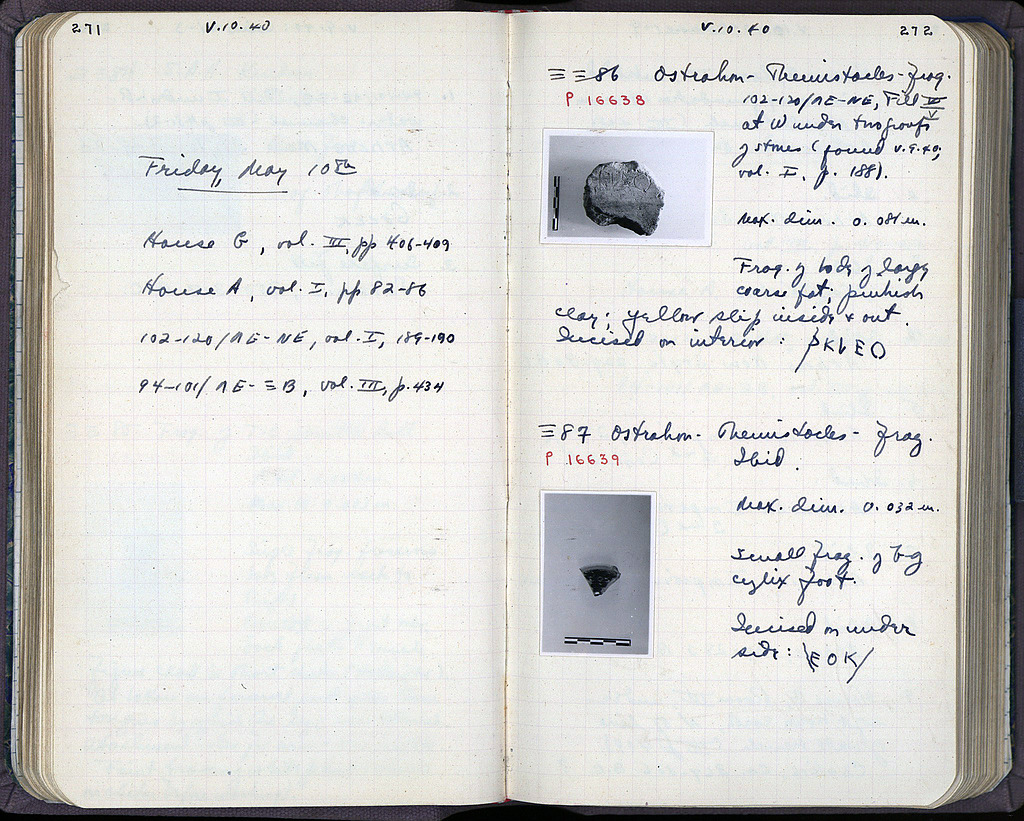 271
V.10.40
Friday, May 10th
House G, vol. III, pp 406-409
House A, vol. I, pp 82-86
102-120/ΛE-NE, vol. I, 189-190
94-101/ΛE-ΞB, vol. III, p. 434
V.10.40
272
86 Ostrakon - Themistocles - frag.
P 16638
102-120/ΛE-NE, Fill
V
at W under two groups
of stones (found V.9.40,
vol. I, p. 188).
Max. dim. 0.081 m.
Frag. of body of large
coarse pot; pinkish
clay; yellow slip inside & out.
Incised on interior:
Ξ87 Ostrakon - Themistocles - frag.
P 16639
Ibid.
Max. dim. 0.032 m.
Small frag. of b-g
cylix foot.
Incised on under
side: \ΕΟΚ/